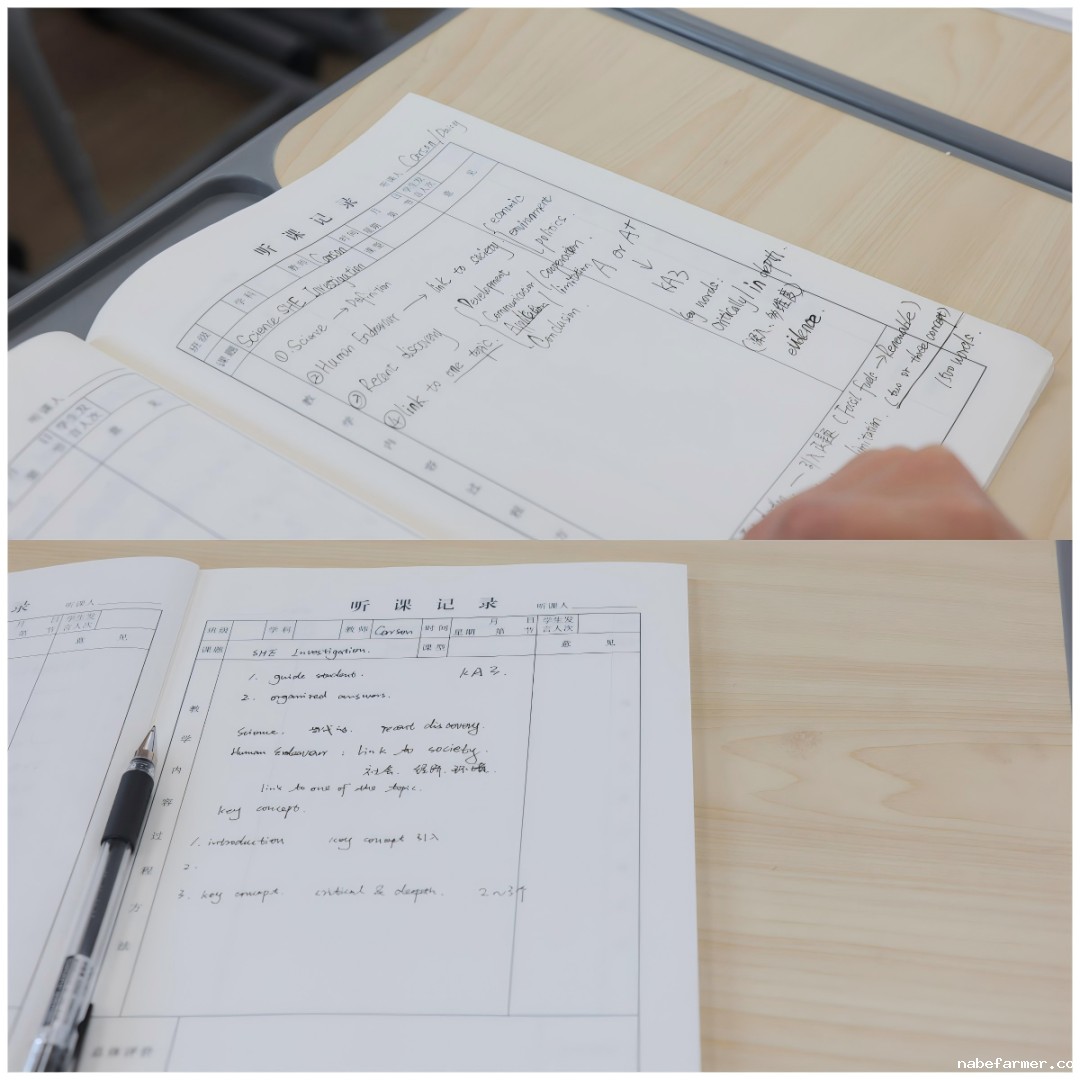 听课记录
听课人 Carson/Daisy
班级 学科 教师 Carson 时间 月 日 星期 第 节 学生发言人次
课题 Science SHE Investigation 课型
意 见
教 学 内 容 过 程 方
① Science → Definition
② Human Endeavour → link to society { economic
environment
politics.
③ Recent discovery { Development
Communication/ cooperation.
limitation
④ link to one topic.
Conclusion
A or A+
↓
KA3
key words:
Critically/in depth.
evidence.
(Fossil fuels → Renewable)
limitation. (two or three concept)
1500 words.
听课人
日 学生发
节 言人次
意 见
录 听课人
月 日 学生发
第 节 言人次
意 见
听课记录 听课人
班级 学科 教师 Carson 时间 月 日 星期 第 节 学生发言人次
课题 SHE Investigation. 课型 意 见
教 学 内 容 过 程 方 法
1. guide student. KA3.
2. organized answers.
Science. recent discovery.
Human Endeavour : link to society.
社会. 经济.
link to one of the topic.
key concept.
1. introduction key concept 引入
2.
3. key concept. critical & deepth. 2~3个
总体评价
nabefarmer.co